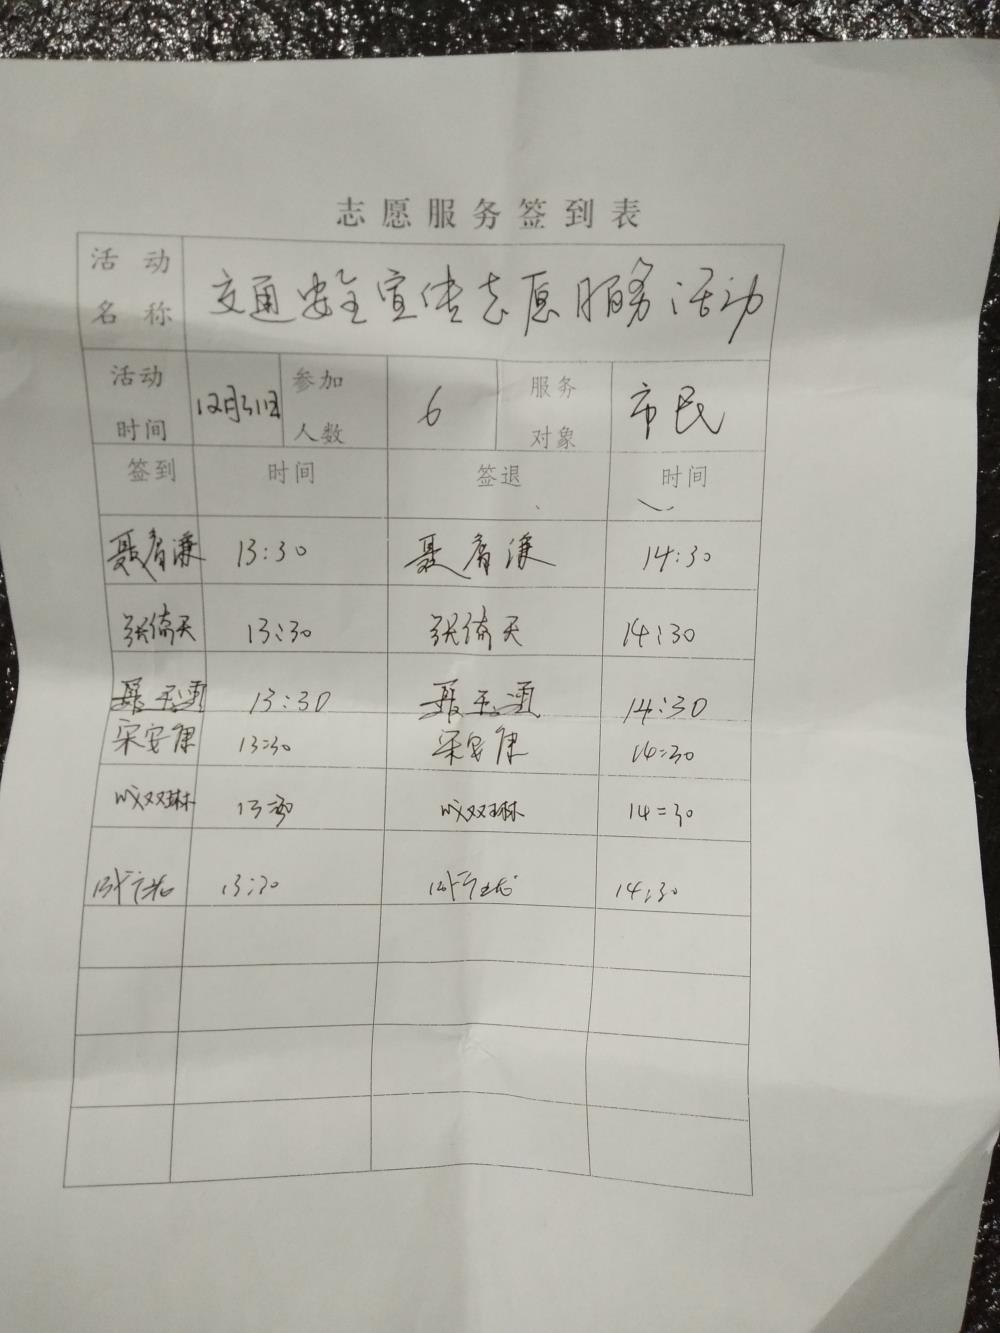 志愿服务签到表
活动名称 交通安全宣传志愿服务活动
活动时间 12月31日 参加人数 6 服务对象 市民
签到 时间 签退 时间
13:30 14:30
张倚天 13:30 张倚天 14:30
13:30 14:30
宋安康 13:30 宋安康 14:30
双琳 13:30 双琳 14:30
13:30 14:30